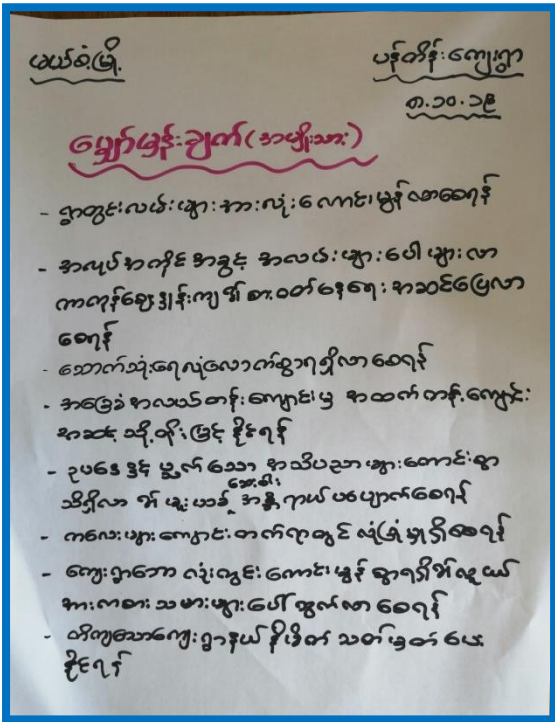 မယ်စဲ့မြို့ ပန်တိန်းကျေးရွာ
၈.၁၀.၁၉
မျှော်မှန်းချက် (အမျိုးသား)
- ရွာတွင်းလမ်းများအားလုံးကောင်းမွန်လာစေရန်
- အလုပ်အကိုင်အခွင့် အလမ်းများပေါများလာ
ကာကုန်ဈေးနှုန်းကျ၍စား၀တ်နေရေးအဆင်ပြေလာ
စေရန်
- သောက်သုံးရေလုံလောက်စွာရရှိလာစေရန်
- အခြေခံအလယ်တန်းကျောင်းမှ အထက်တန်းကျောင်း
အဆင့်သို့တိုးမြှင့်နိုင်ရန်
- ဥပဒေနှင့်မျှက်သော အသိပညာများကောင်းစွာ
သိရှိလာ၍ မူးယစ်ဆေးဝါးအန္တရာယ်ပပျောက်စေရန်
- ကလေးများကျောင်းတက်ရာတွင်လုံခြုံမှုရှိစေရန်
- ကျေးရွာဘောလုံးကွင်းကောင်းမွန်စွာရရှိ၍လူငယ်
အားကစားသမားများပေါ်ထွက်လာစေရန်
- တိကျသောကျေးရွာနယ်နိမိတ်သတ်မှတ်ပေး
နိုင်ရန်